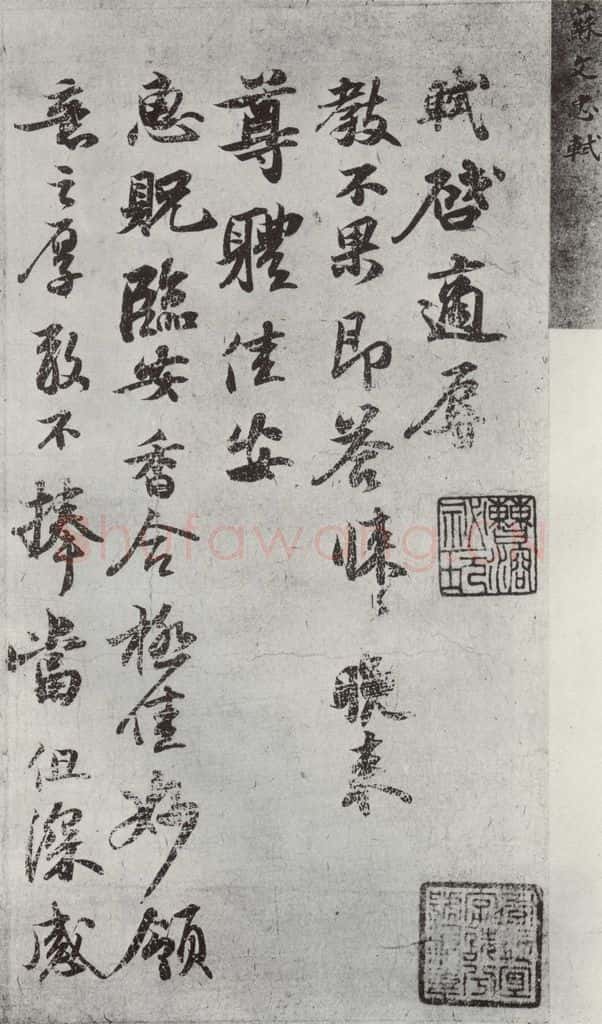 蘇文忠軾
軾啓適辱
教不果即答悚悚晚來
尊體佳安
惠貺臨安香合極佳妙領
意之厚敢不捧當但深感
shufawang.cn